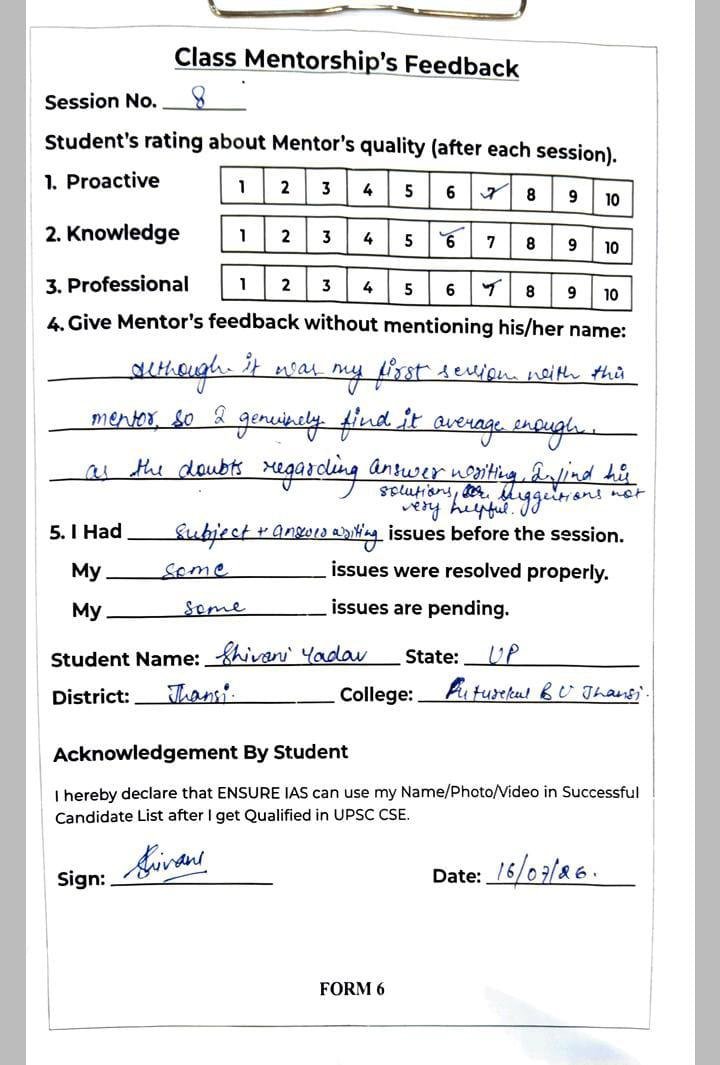 Class Mentorship's Feedback
Session No. 8
Student's rating about Mentor's quality (after each session).
1. Proactive 1 2 3 4 5 6 7 8 9 10
2. Knowledge 1 2 3 4 5 6 7 8 9 10
3. Professional 1 2 3 4 5 6 7 8 9 10
4. Give Mentor's feedback without mentioning his/her name:
although it was my first session with this
mentor, so I genuinely find it average enough.
as the doubts regarding answer writing, I find his
solutions, suggestions not
very helpful.
5. I Had Subject + answer writing issues before the session.
My some issues were resolved properly.
My some issues are pending.
Student Name: Shivani Yadav State: UP
District: Jhansi. College: B U Jhansi.
Acknowledgement By Student
I hereby declare that ENSURE IAS can use my Name/Photo/Video in Successful
Candidate List after I get Qualified in UPSC CSE.
Sign: Shivani Date: 16/07/26.
FORM 6